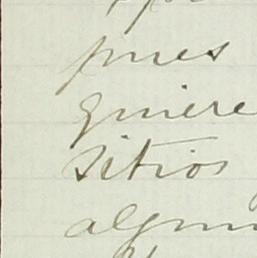 pues
quiere
sitios
algun